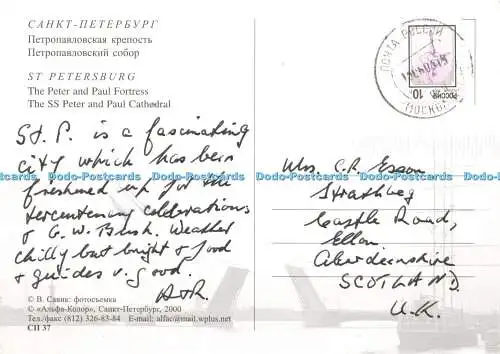 САНКТ-ПЕТЕРБУРГ
Петропавловская крепость
Петропавловский собор
ST PETERSBURG
The Peter and Paul Fortress
The SS Peter and Paul Cathedral
St. P. is a fascinating
city which has been
freshened up for the
tercentenary celebrations
& G. W. Bush. Weather
chilly but bright & food
& guides v. good.
A & R.
© В. Савик: фотосъемка
© «Альфа-Колор», Санкт-Петербург, 2000
Тел./факс (812) 326-83-84 E-mail: alfac@mail.wplus.net
СП 37
ПОЧТА РОССИИ
МОСКВА
РОССИЯ 10
Mrs. C.R. Esson
Strathbeg
Castle Road,
Ellon
Aberdeenshire
SCOTLAND
U.K.
Danatch-Postcards